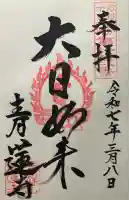 奉拝
令和七年三月八日
大日如来
蓮寺